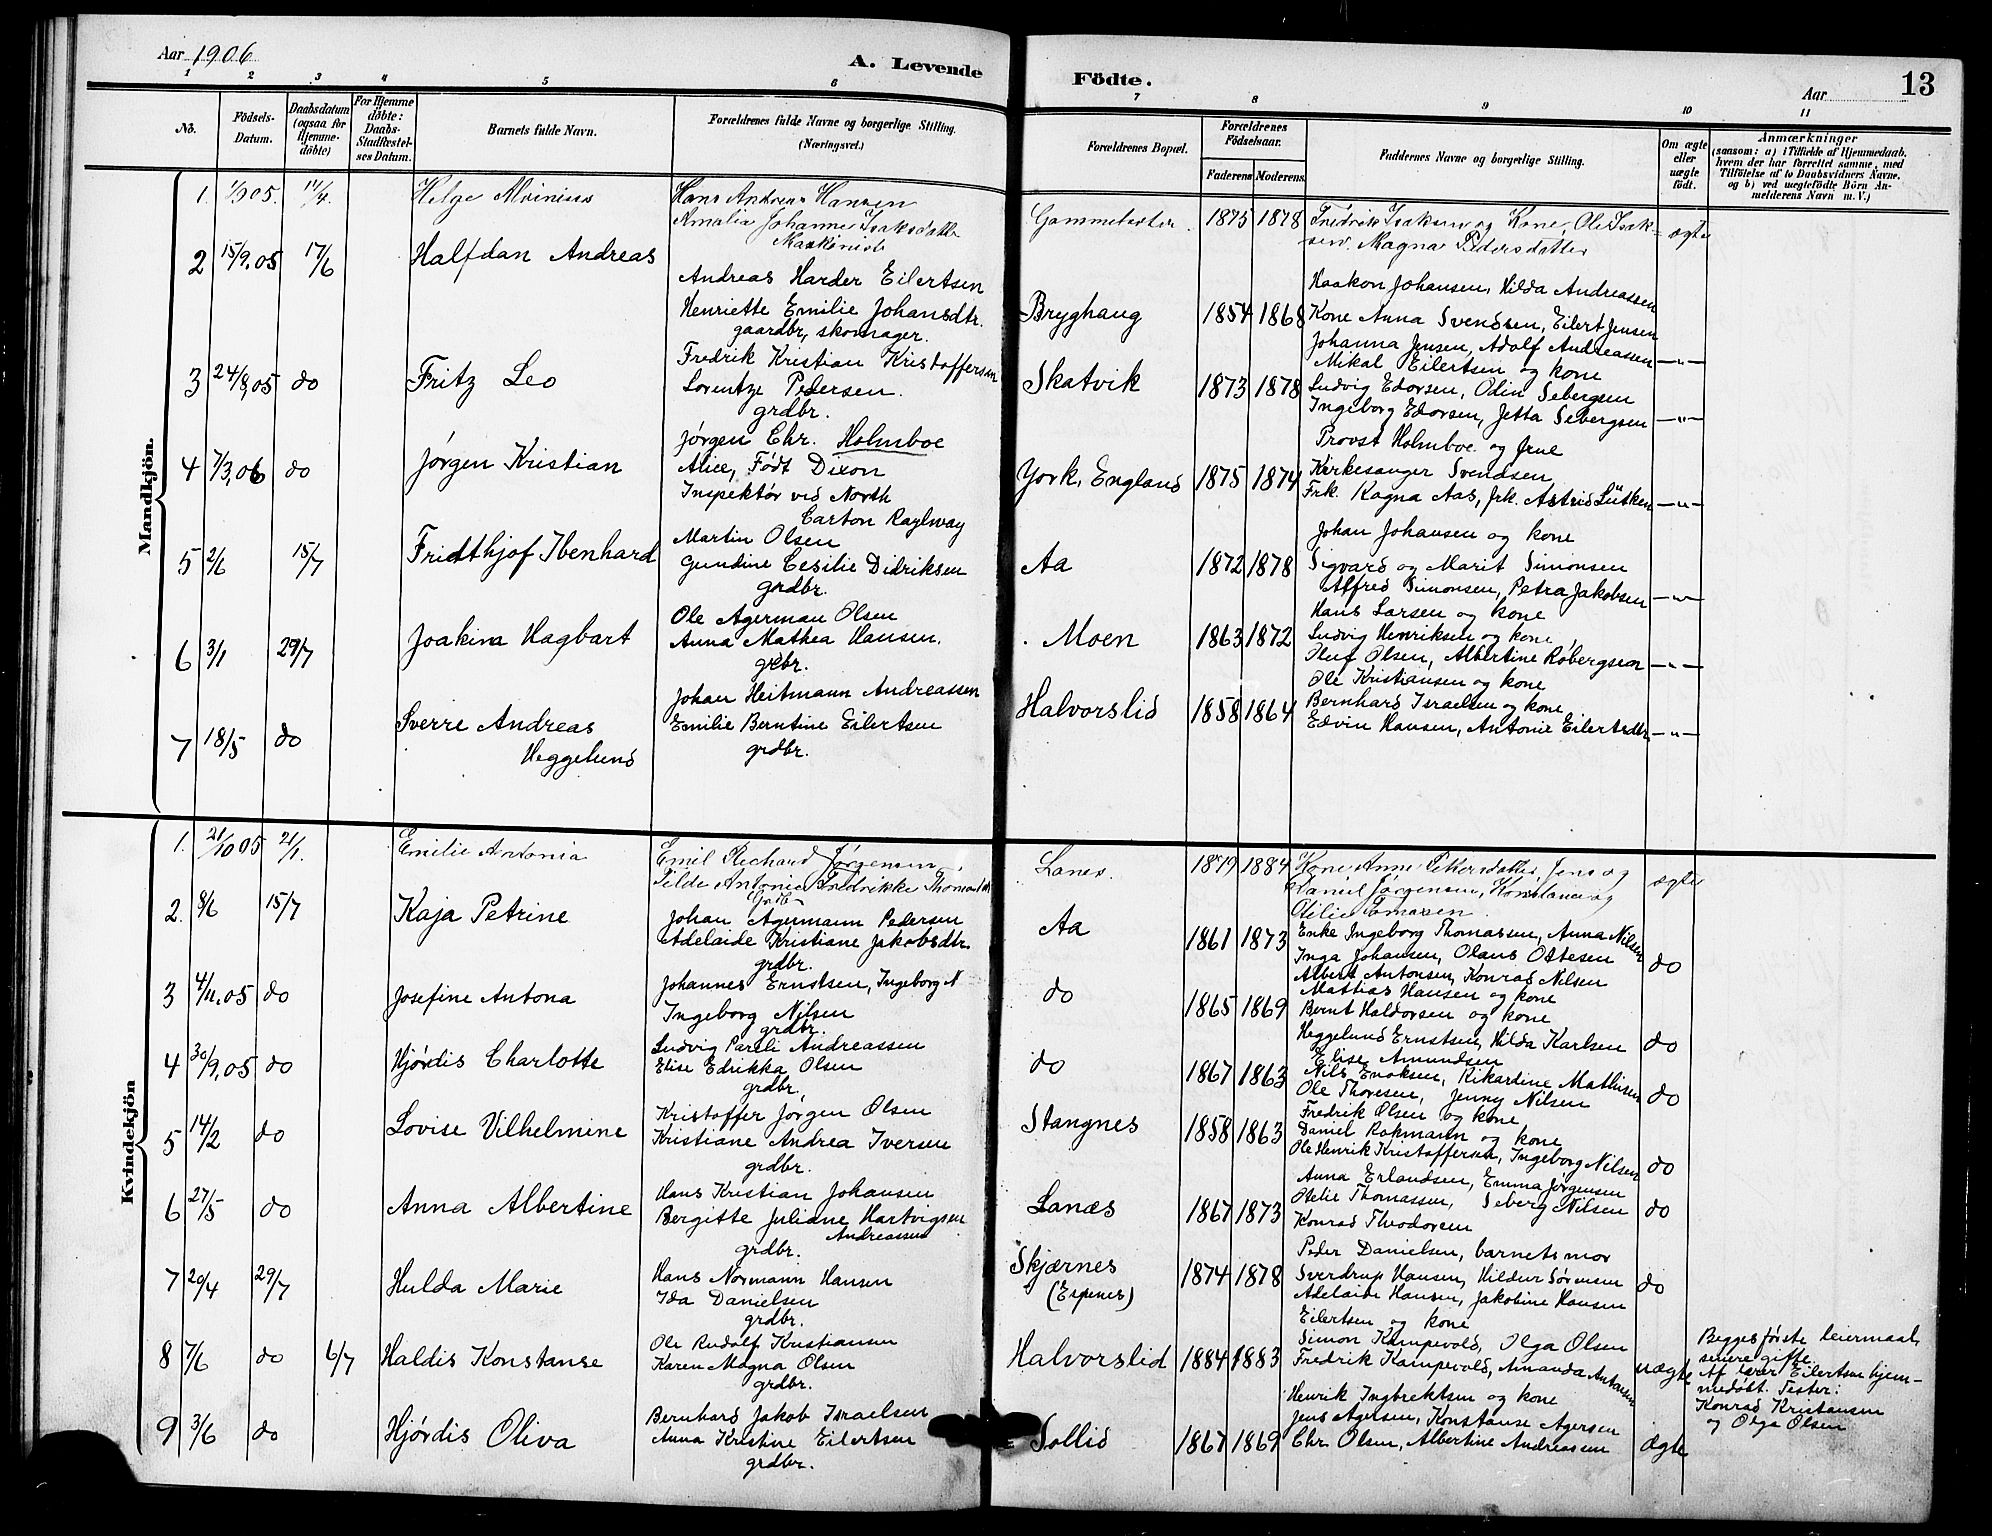 Aar 1906
A. Levende Födte.
Aar 13
1 2 3 4 5 6 7 8 9 10 11
No.
Födsels-Datum.
Daabsdatum (ogsaa for Hjemme-döbte)
For Hjemme döbte: Daabs-Stadfæstel-ses Datum.
Barnets fulde Navn.
Forældrenes fulde Navne og borgerlige Stilling. (Næringsvei.)
Forældrenes Bopæl.
Forældrenes Födselsaar.
Faderens Moderens
Faddernes Navne og borgerlige Stilling.
Om ægte eller uægte födt.
Anmærkninger
(saasom: a) i Tilfælde af Hjemmedaab,
hvem der har forrettet samme, med
Tilföielse af to Daabsvidners Navne,
og b) ved uægtefödte Börn An-
melderens Navn m. V.)
Mandkjön.
1. 1/9 05. 14/4. Helge Meinius
Hans Andreas Hansen
Amalia Johanne Isaksdatter
Maskinist
1875 1878
Fredrik Isaksen og Kone, Ole Isak-
sen. Magna Pedersdatter
ægte
2 15/9,05 17/6 Halfdan Andreas
Andreas Harder Eilertsen
Henriette Emilie Johansdtr.
gaardbr, skomager.
Bryghaug 1854 1868
Haakon Johansen, Hilda Andreassen
Kone Anna Svendsen, Eilert Jensen
Johanna Jensen, Adolf Andreassen
Mikal Eilertsen og kone
—"—
3 24/8,05 do Fritz Leo
Fredrik Kristian Kristoffersen
Lorentze Pedersen.
grdbr.
Skatvik 1873 1878
Ludvig Edorsen, Odin Sebergsen
Ingeborg Edorsen, Jetta Sebergsen
—"—
4 7/3,06 do Jørgen Kristian
Jørgen Chr. Holmboe
Alice, Født Dixon
Inspektør ved North
Carton Raylway
York, England 1875 1874
Provst Holmboe og frue
Kirkesanger Svendsen,
Frk. Ragna Aas, frk. Astrid Lütken
—"—
5 2/6 15/7 Fridthjof Ibenhard
Martin Olsen
Gundine Cesilie Didriksen
grdbr.
Aa 1872 1878
Johan Johansen og kone
Sigvard og Marit Simonsen
Alfred Simonsen, Petra Jakobsen
—"—
6 3/1 29/7 Joakim Hagbart
Ole Agerman Olsen
Anna Mathea Hansen.
grdbr.
Moen 1863 1872
Hans Larsen og kone
Ludvig Henriksen og kone
Oluf Olsen, Albertine Robergsen
—"—
7 18/5 do Sverre Andreas
Heggelund
Johan Heitmann Andreassen
Emilie Berntine Eilertsen
grdbr.
Halvorslid 1858 1864
Ole Kristiansen og kone
Bernhard Israelsen og kone
Edvin Hansen, Antonie Eilertsdtr.
—"—
Kvindekjön
1. 21/10 05 21/1. Emilie Antonia
Emil Richard Jørgensen
Tilde Antonie Fredrikke
Lanes. 1879 1884
Kone Anne Petersdatter, Jens og
Daniel Jørgensen, Konstance og
Otilie Tomasen.
ægte
2. 8/6 15/7 Kaja Petrine
Johan Agermann Pedersen
Adelaide Kristiane Jakobsdtr.
grdbr.
Aa 1861 1873
Enke Ingeborg Thomassen, Anna Nilsen
Inga Johansen, Olaus Ottesen
Albert Antonsen, Konrad Nilsen
do
3 4/11,05 do Josefine Antona
Johannes Ernstsen, Ingeborg N
Ingeborg Nilsen
grdbr.
do 1865 1869
Mattias Hansen og kone
Bernt Haldorsen og kone
Heggelund Ernstsen, Hilda Karlsen
do
4 30/9,05 do Hjørdis Charlotte
Ludvig Pareli Andreassen
Elise Edrikka Olsen
grdbr,
do 1867 1863
Elise Amundsen
Nils Enoksen, Rikardine Mathisen
Ole Thoresen, Jenny Nilsen
do
5 14/2 do Lovise Vilhelmine
Kristoffer Jørgen Olsen
Kristiane Andrea Iversen
grdbr.
Stangnes 1858 1863
Fredrik Olsen og kone
Daniel Rokmann og kone
Ole Henrik Kristoffersen, Ingeborg Nilsen
do
6 27/5 do Anna Albertine
Hans Kristian Johansen
Bergitte Juliane Hartvigsen
Andreassen
grdbr.
Lanæs 1867 1873
Anna Erlandsen, Emma Jørgensen
Otelie Thomassen, Seberg Nilsen
Konrad Theodorsen
do
7 20/4 29/7 Hulda Marie
Hans Normann Hansen
Ida Danielsen
grdbr.
Skjærnes
(Espenes) 1874 1878
Peder Danielsen, barnets mor
Sverdrup Hansen, Hildur Sørensen
Adelaide Hansen, Jakobine Hansen
do
8 7/6 do 6/7 Haldis Konstanse
Ole Rudolf Kristiansen
Karen Magna Olsen
grdbr.
Halvorslid 1884 1883
Eilertsen og kone
Simon Kampevold, Olga Olsen
Fredrik Kampevold, Amanda Antonsen
uægte
Begges første leiermaal,
senere gifte.
Af lærer Eilertsen hjem-
medøbt. Tester:
Konrad Kristiansen
og Olga Olsen
9 3/6 do Hjørdis Oliva
Bernhard Jakob Israelsen
Anna Kristine Eilertsen
grdbr.
Sollid 1867 1869
Henrik Ingbrektsen og kone
Jens Agersen, Konstanse Agersen
Chr. Olsen, Albertine Andreassen
Ægte